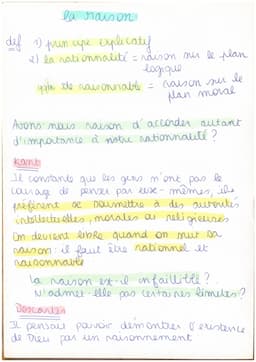 la raison
def 1) principe explicatif
2) la rationnalité = raison sur le plan
logique
raisonnable = raison sur le
plan moral
Avons-nous raison d'accorder autant
d'importance à notre rationnalité ?
Kant:
Il constate que les gens n'ont pas le
courage de penser par eux-mêmes, ils
préfèrent se soumettre à des autorités
intellectuelles, morales ou religieuses
On devient libre quand on suit sa
raison : il faut être rationnel et
raisonnable
la raison est-il infaillible ?
N'admet-elle pas certaines limites ?
Descartes
Il pensait pouvoir démontrer l'existence
de Dieu par un raisonnement